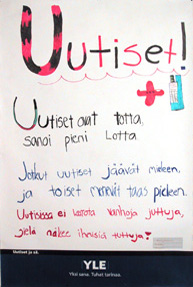 Uutiset!
Uutiset ovat totta,
sanoi pieni Lotta.
Jotkut uutiset jäävät mieleen,
ja toiset menevät taas pieleen.
Uutisissa ei kerrota vanhoja juttuja,
siellä näkee ihmisiä tuttuja!
Uutiset jo nk.
YLE
Yksi sana. Tuhat tarinaa.